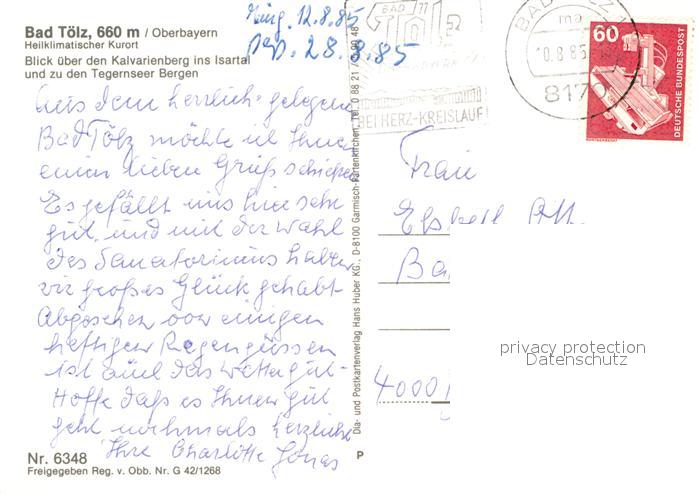 Bad Tölz, 660 m / Oberbayern
Heilklimatischer Kurort
Blick über den Kalvarienberg ins Isartal
und zu den Tegernseer Bergen
12.8.85
28.8.85
Aus dem herrlich gelegenen
Bad Tölz möchte ich Ihnen
einen lieben Gruß schicken
Es gefällt uns hier sehr
gut, und mit der Wahl
des Sanatoriums haben
wir großes Glück gehabt.
Abgesehen von einigen
heftigen Regengüssen
ist auch das Wetter gut.
Hoffe daß es Ihnen gut
geht nochmals herzliche
Ihre Charlotte Jonas
Nr. 6348
Freigegeben Reg. v. Obb. Nr. G 42/1268
Dia- und Postkartenverlag Hans Huber KG, D-8100 Garmisch-Partenkirchen, Tel. 0 88 21
P
BAD
TÖLZ
BEI HERZ-KREISLAUF
BAD TÖLZ 1
ma
10.8.85
8170
60
DEUTSCHE BUNDESPOST
Frau
Ba
4000
privacy protection
Datenschutz